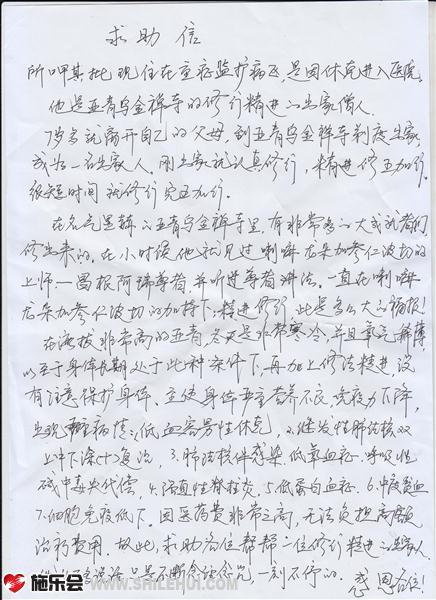 求助信
所呷其扎现住在重症监护病区,是因休克进入医院,
他是亚青乌金禅寺的修行精进的出家僧人.
7岁多就离开自己的父母,到亚青乌金禅寺剃度出家,
成为一名出家人.刚出家就认真修行,精进修五加行.
很短时间就修行完五加行.
在名气是赫的亚青乌金禅寺里,有非常多的大成就者们
修出来的.在小时候他就见过喇嘛龙朵加参仁波切的
上师——昌根阿瑞尊者,并听过尊者讲法.一直在喇嘛
龙朵加参仁波切的加持下,精进修行.此是多么大的福报!
在海拔非常高的亚青,冬天是非常寒冷,并且氧气稀薄,
以至于身体长期处于此种条件下,再加上修法精进没
有注意保护身体,主使身体严重营养不良,免疫力下降,
出现病情:1.低血容易性休克,2.继发性肺结核双
上中下涂(+)复治,3.肺结核伴感染.低氧血症.呼吸性
碱中毒失代偿 4.强直性脊柱炎 5.低蛋白血症.6.中度贫血
7.细胞免疫低下.因医药费非常之高,无法负担高额
治疗费用.故此,求助各位帮帮一位修行精进的出家人.
只是不断念经念咒,一刻不停的.感恩各位!
施乐会
WWW.SHILEHUI.COM